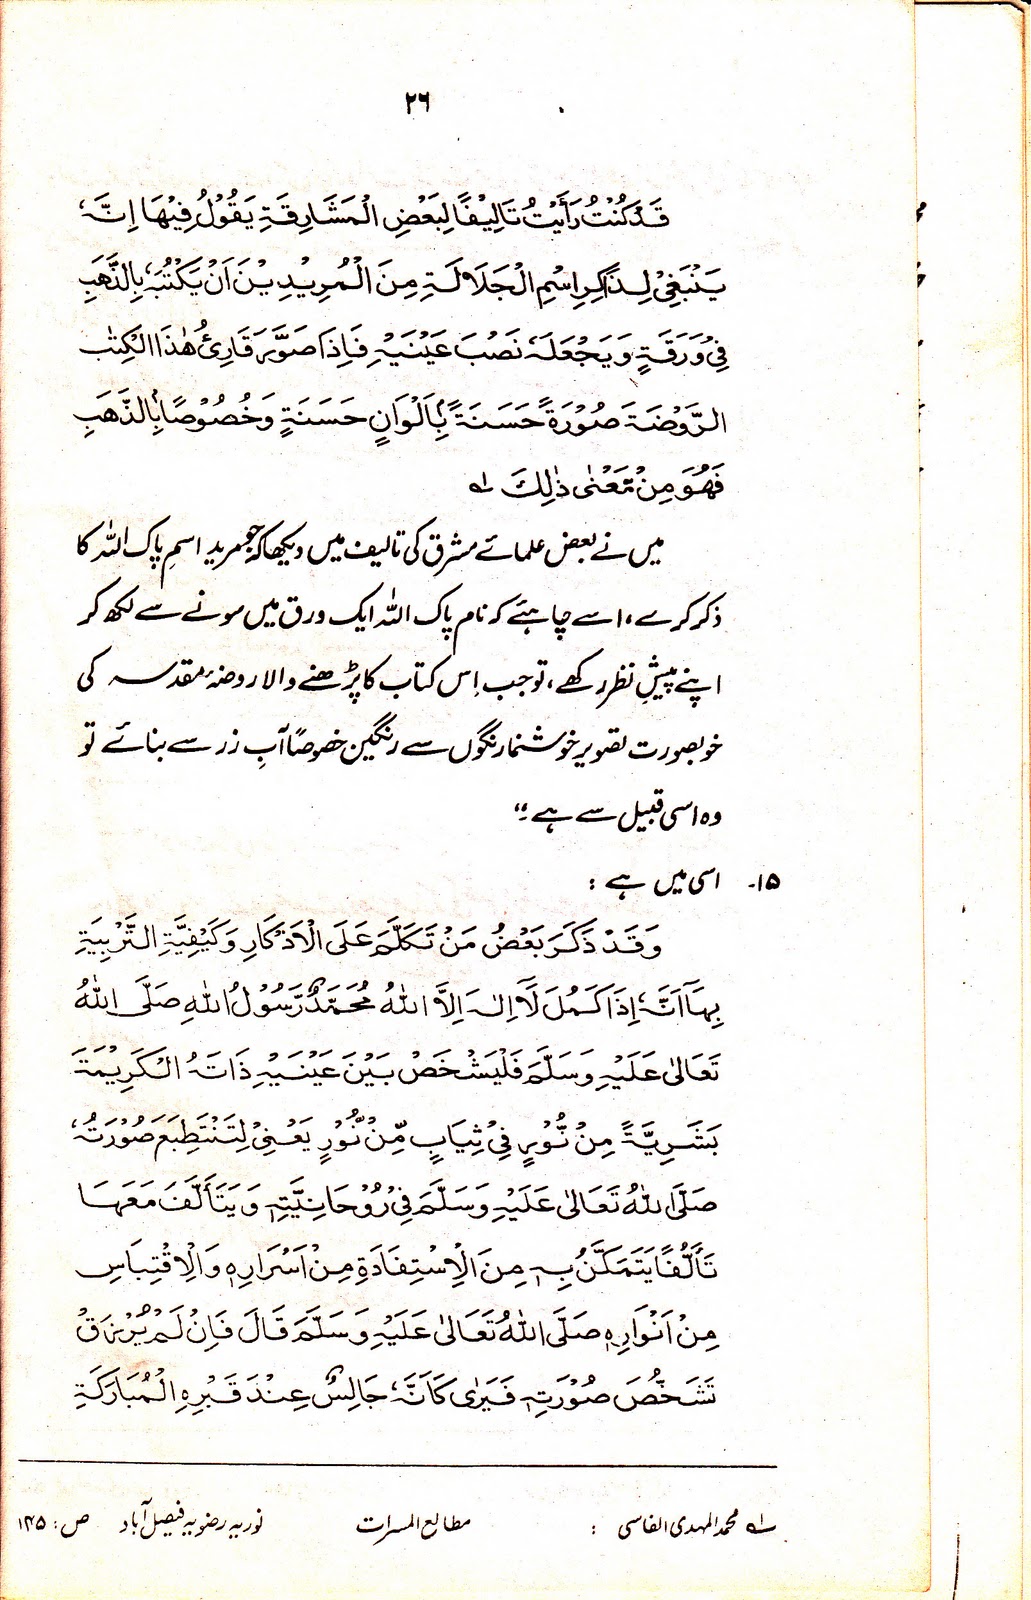 ۲۶
قَدْ كُنْتُ رَأَيْتُ تَالِيْفًا لِّبَعْضِ الْمَشَارِقَةِ يَقُوْلُ فِيْهَا اِنَّهٗ
يَنْبَغِيْ لِذَاكِرِ اسْمِ الْجَلَالَةِ مِنَ الْمُرِيْدِيْنَ اَنْ يَّكْتُبَهٗ بِالذَّهَبِ
فِيْ وَرَقَةٍ وَيَجْعَلَهٗ نَصْبَ عَيْنَيْهِ فَاِذَا صَوَّرَ قَارِئُ هٰذَا الْكِتٰبِ
الرَّوْضَةَ صُوْرَةً حَسَنَةً بِاَلْوَانٍ حَسَنَةٍ وَخُصُوْصًا بِالذَّهَبِ
فَهُوَ مِنْ مَّعْنٰى ذٰلِكَ لہ
میں نے بعض علمائے مشرق کی تالیف میں دیکھا کہ جو مرید اسمِ پاک اللہ کا
ذکر کرے، اسے چاہئے کہ نام پاک اللہ ایک ورق میں سونے سے لکھ کر
اپنے پیشِ نظر رکھے، تو جب اِس کتاب کا پڑھنے والا روضۂ مقدسہ کی
خوبصورت تصویر خوشنما رنگوں سے رنگین خصوصًا آبِ زر سے بنائے تو
وہ اسی قبیل سے ہے۔“
۱۵۔ اسی میں ہے :
وَقَدْ ذَكَرَ بَعْضُ مَنْ تَكَلَّمَ عَلَى الْاَذْكَارِ وَكَيْفِيَّةِ التَّرْبِيَةِ
بِهَآ اَنَّهٗ اِذَا كَمُلَ لَآ اِلٰهَ اِلَّا اللهُ مُحَمَّدٌ رَّسُوْلُ اللهِ صَلَّى اللهُ
تَعَالٰى عَلَيْهِ وَسَلَّمَ فَلْيَشْخَصْ بَيْنَ عَيْنَيْهِ ذَاتَهُ الْكَرِيْمَةَ
بَشَرِيَّةً مِنْ نُّوْرٍ فِيْ ثِيَابٍ مِّنْ نُّوْرٍ يَعْنِيْ لِتَنْتَطِبَعَ صُوْرَتُهٗ
صَلَّى اللهُ تَعَالٰى عَلَيْهِ وَسَلَّمَ فِيْ رُوْحَانِيَّتِهٖ وَيَتَأَلَّفَ مَعَهَا
تَأَلُّفًا يَتَمَكَّنُ بِهٖ مِنَ الْاِسْتِفَادَةِ مِنْ اَسْرَارِهٖ وَالْاِقْتِبَاسِ
مِنْ اَنْوَارِهٖ صَلَّى اللهُ تَعَالٰى عَلَيْهِ وَسَلَّمَ قَالَ فَاِنْ لَّمْ يُرْزَقْ
تَشَخُّصَ صُوْرَتِهٖ فَيَرٰى كَاَنَّهٗ جَالِسٌ عِنْدَ قَبْرِهِ الْمُبَارَكَةِ
لہ محمد المہدی الفاسی : مطالع المسرات نوریہ رضویہ فیصل آباد ص: ۱۴۵